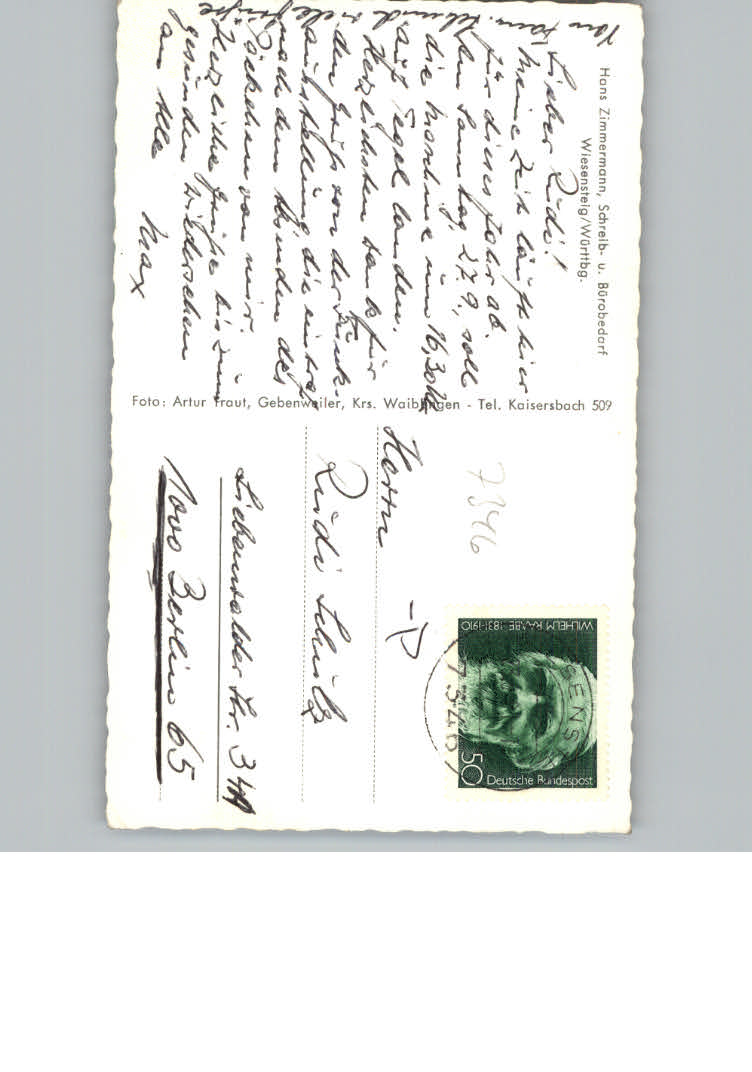 Hans Zimmermann, Schreib- u. Bürobedarf
Wiesensteig/Württbg.
Lieber Rudi!
Meine Zeit läuft hier
für dieses Jahr ab.
Am Samstag, 27.9., soll
die Maschine um 16,30 Uhr
auf Tegel landen.
Herzlichen Dank für
den Gruß von der
ausstellung, die
nach den Stunden des
von mir.
Herzliche Grüße bis zum
gesunden Wiedersehen
an Alle
Max
Von Fam. viele Grüße
Foto: Artur Traut, Gebenweiler, Krs. Waiblingen - Tel. Kaisersbach 509
7346
Herrn
Rudi Schulz
Liebenwalder Str. 34A
1000 Berlin 65
WILHELM RAABE · 1831-1910
50 Deutsche Bundespost
7346